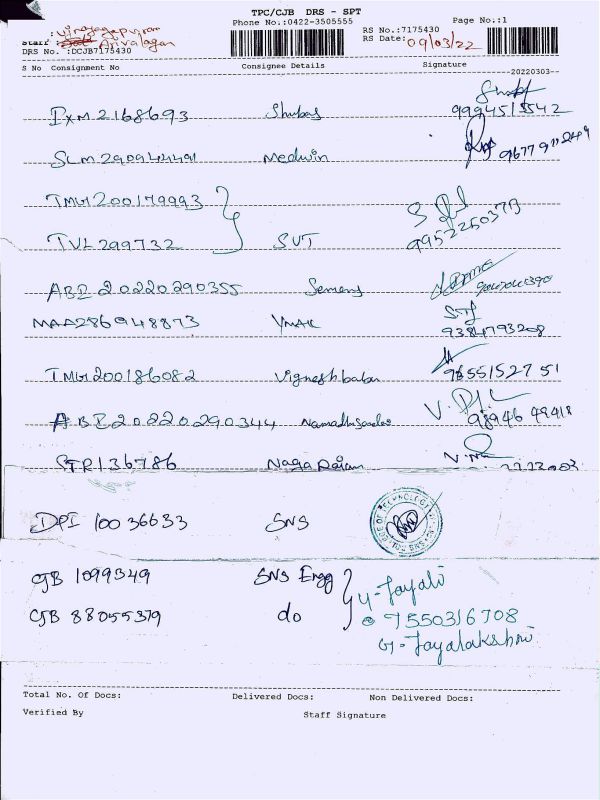 TPC/CJB DRS - SPT
Phone No.:0422-3505555
Page No.:1
Staff : Arivalagan
DRS No. :DCJB7175430
RS No.:7175430
RS Date: 09/03/22
S No Consignment No Consignee Details Signature
--20220303--
IXM 2168693 Shubas 9994515542
SLM 290944491 Medwin
TMG1200179993 9952250373
TVL 299732 SVT
ABI 20220290355 Semens
MAA286948873 YMAK 9384793208
TMG1200186082 Vigneshbabu 9655152751
ABI 20220290344 98946 49418
STR136786 Nagarajan
DPI 10036633 SNS
CJB 1099349 SNS Engg
CJB 88055379 do 9550316708
G. Jayalakshmi
Total No. Of Docs: Delivered Docs: Non Delivered Docs:
Verified By Staff Signature